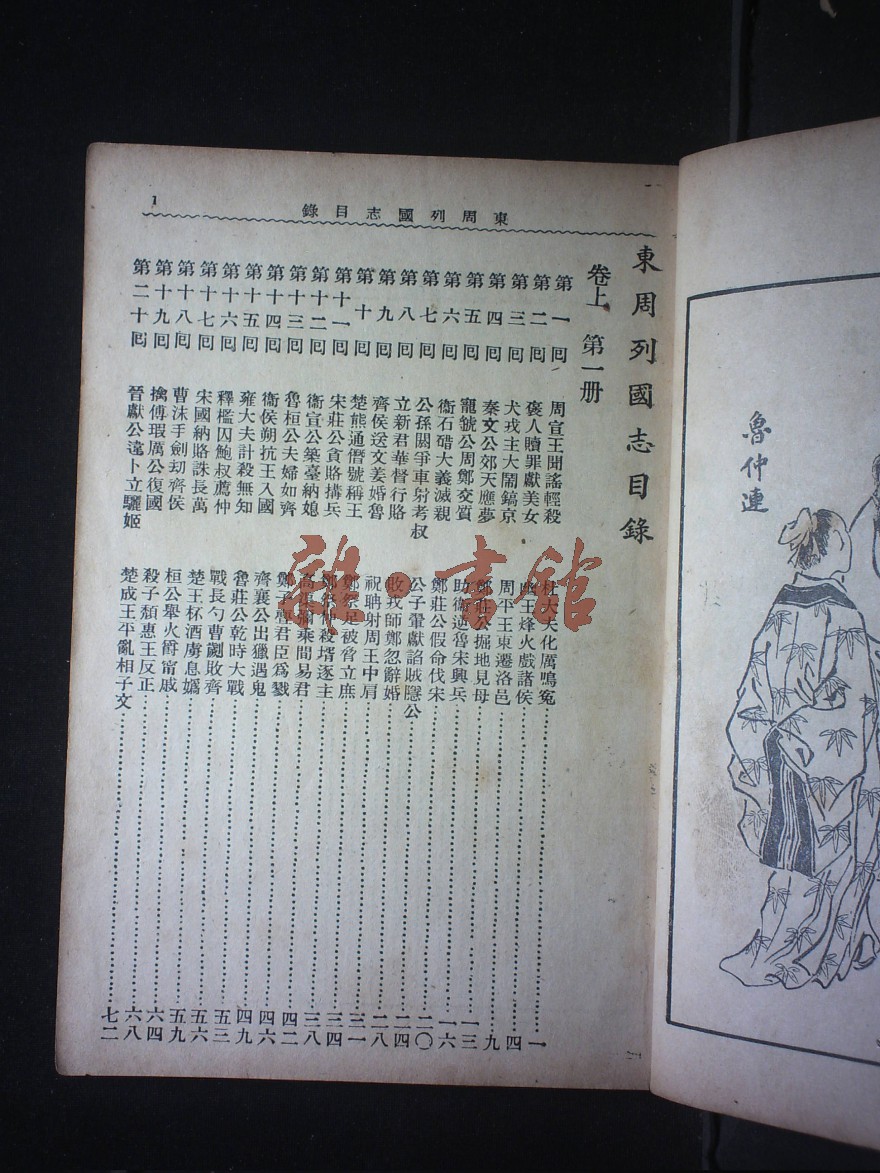 魯仲連
東周列國志目錄
1
東周列國志目錄
卷上 第一册
第一囘 周宣王聞謠輕殺 杜大夫化厲鳴冤 一
第二囘 褒人贖罪獻美女 幽王烽火戲諸侯 四
第三囘 犬戎主大鬧鎬京 周平王東遷洛邑 九
第四囘 秦文公郊天應夢 鄭莊公掘地見母 一三
第五囘 寵虢公周鄭交質 助衞逆魯宋興兵 一六
第六囘 衞石碏大義滅親 鄭莊公假命伐宋 二〇
第七囘 公孫閼爭車射考叔 公子翬獻諂賊隱公 二四
第八囘 立新君華督行賂 敗戎師鄭忽辭婚 二八
第九囘 齊侯送文姜婚魯 祝聘射周王中肩 三一
第十囘 楚熊通僭號稱王 鄭祭足被脅立庶 三四
第十一囘 宋莊公貪賂搆兵 鄭祭仲殺壻逐主 三八
第十二囘 衞宣公築臺納媳 高渠彌乘間易君 四二
第十三囘 魯桓公夫婦如齊 鄭子亹君臣爲戮 四六
第十四囘 衞侯朔抗王入國 齊襄公出獵遇鬼 四九
第十五囘 雍大夫計殺無知 魯莊公乾時大戰 五三
第十六囘 釋檻囚鮑叔薦仲 戰長勺曹劌敗齊 五六
第十七囘 宋國納賂誅長萬 楚王杯酒虜息媯 五九
第十八囘 曹沬手劍劫齊侯 桓公舉火爵甯戚 六四
第十九囘 擒傅瑕厲公復國 殺子頹惠王反正 六八
第二十囘 晉獻公違卜立驪姬 楚成王平亂相子文 七二
雜·書館